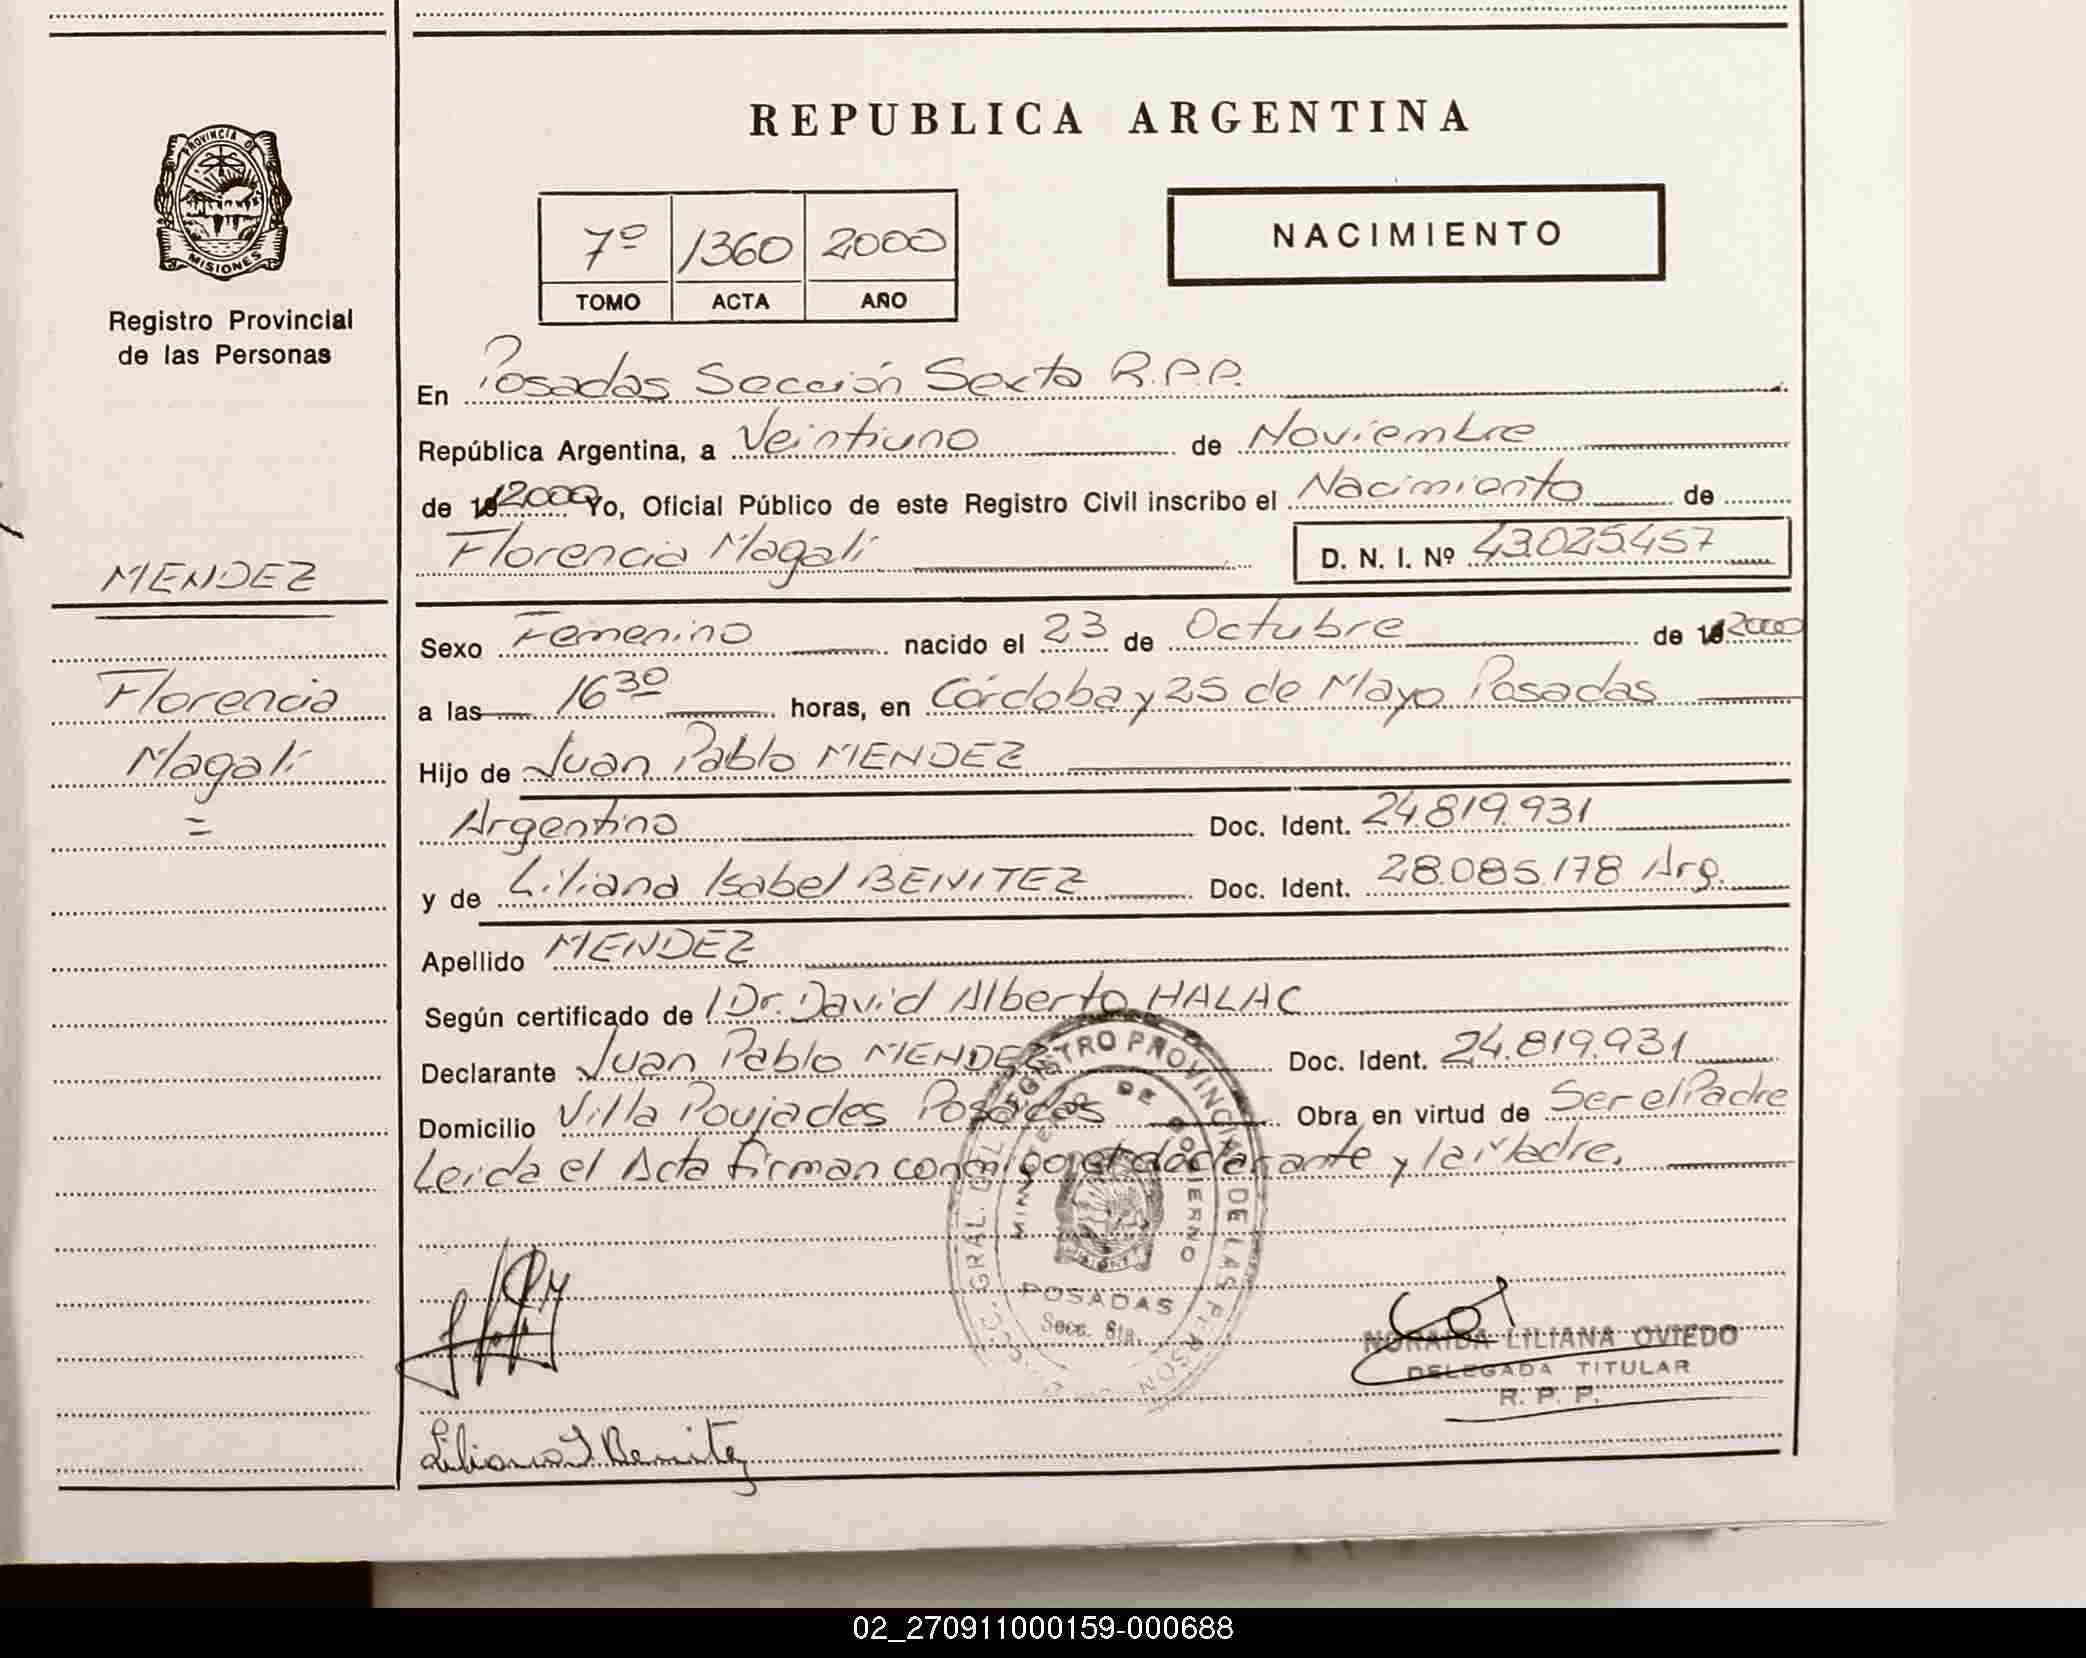 PROVINCIA D
MISIONES
Registro Provincial
de las Personas
MENDEZ
Florencia
Magali
=
REPUBLICA ARGENTINA
7º 1360 2000
TOMO ACTA AÑO
NACIMIENTO
En Posadas Sección Sexta R.P.P.
República Argentina, a Veintiuno de Noviembre
de 2000 Yo, Oficial Público de este Registro Civil inscribo el Nacimiento de
Florencia Magali D. N. I. Nº 43.025.457
Sexo Femenino nacido el 23 de Octubre de 2000
a las 16 30 horas, en Córdoba y 25 de Mayo Posadas
Hijo de Juan Pablo MENDEZ
Argentino Doc. Ident. 24.819.931
y de Liliana Isabel BENITEZ Doc. Ident. 28.085.178 Arg.
Apellido MENDEZ
Según certificado de Dr. David Alberto HALAC
Declarante Juan Pablo MENDEZ Doc. Ident. 24.819.931
Domicilio Villa Poujades Posadas Obra en virtud de Ser el Padre
Leida el Acta firman conmigo el declarante y la Madre.
GRAL. DEL REGISTRO PROVINCIAL DE LAS PERSON
MINISTERIO DE GOBIERNO
POSADAS
Secc. 6ta.
NORAIDA LILIANA OVIEDO
DELEGADA TITULAR
R. P. P.
Liliana I. Benitez
02_270911000159-000688